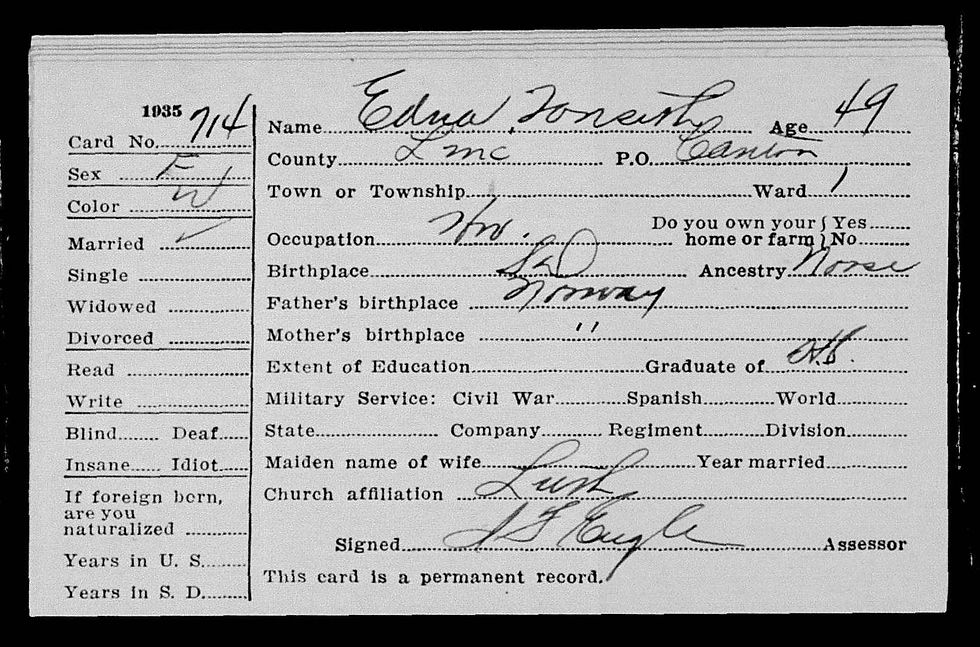 1935
Card No. 714
Sex F
Color W
Married ✓
Single
Widowed
Divorced
Read
Write
Blind Deaf
Insane Idiot
If foreign born,
are you
naturalized
Years in U. S.
Years in S. D.
Name Edna Tonseth Age 49
County Linc P.O. Canton
Town or Township Ward 1
Do you own your { Yes
home or farm } No
Occupation Hw.
Birthplace SD Ancestry Norse
Father's birthplace Norway
Mother's birthplace "
Extent of Education Graduate of
Military Service: Civil War Spanish World
State Company Regiment Division
Maiden name of wife Year married
Church affiliation Luth
Signed Engle Assessor
This card is a permanent record.